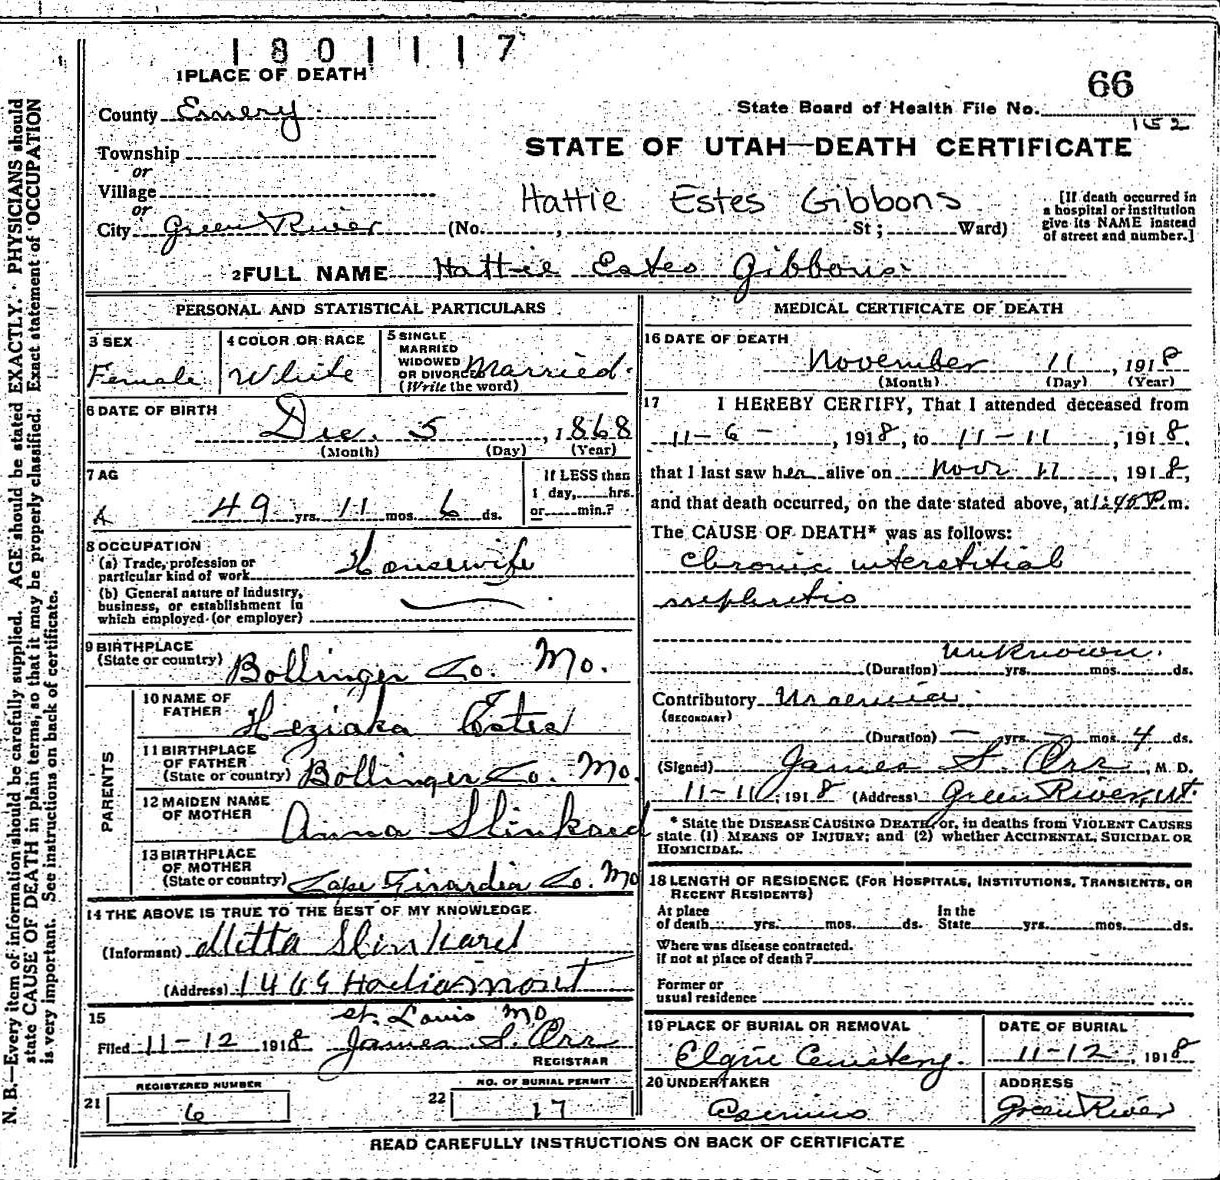 1801117
66
1 PLACE OF DEATH
State Board of Health File No.
152
County Emery
STATE OF UTAH—DEATH CERTIFICATE
Township
or
Village
or
City Green River
Hattie Estes Gibbons
(No. , St ; Ward)
[If death occurred in
a hospital or institution
give its NAME instead
of street and number.]
2 FULL NAME Hattie Estes Gibbons
PERSONAL AND STATISTICAL PARTICULARS
3 SEX
Female
4 COLOR OR RACE
White
5 SINGLE
MARRIED
WIDOWED
OR DIVORCED Married.
(Write the word)
6 DATE OF BIRTH
Dec. 5, 1868
(Month) (Day) (Year)
7 AG
49 yrs. 11 mos. 6 ds.
If LESS than
1 day, hrs.
or min.?
8 OCCUPATION
(a) Trade, profession or
particular kind of work Housewife
(b) General nature of industry,
business, or establishment in
which employed (or employer)
9 BIRTHPLACE
(State or country) Bollinger Co. Mo.
PARENTS
10 NAME OF
FATHER Heziaka Estes
11 BIRTHPLACE
OF FATHER
(State or country) Bollinger Co. Mo.
12 MAIDEN NAME
OF MOTHER Anna Slinkard
13 BIRTHPLACE
OF MOTHER
(State or country) Cape Girardia Co. Mo
14 THE ABOVE IS TRUE TO THE BEST OF MY KNOWLEDGE.
(Informant) Slinkard
(Address)
St. Louis Mo
15
Filed 11-12 1918 James S. Orr
REGISTRAR
REGISTERED NUMBER
21 6
NO. OF BURIAL PERMIT
22 17
MEDICAL CERTIFICATE OF DEATH
16 DATE OF DEATH
November 11, 1918
(Month) (Day) (Year)
17 I HEREBY CERTIFY, That I attended deceased from
11-6-, 1918, to 11-11, 1918,
that I last saw her alive on Novr 11, 1918,
and that death occurred, on the date stated above, at 1:45 P.m.
The CAUSE OF DEATH* was as follows:
Chronic interstitial
nephritis
unknown.
(Duration) yrs. mos. ds.
Contributory Uraemia
(SECONDARY)
(Duration) — yrs. — mos. 4 ds.
(Signed) James S. Orr, M. D.
11-11, 1918 (Address) Green River, Ut.
* State the DISEASE CAUSING DEATH, or, in deaths from VIOLENT CAUSES
state (1) MEANS OF INJURY; and (2) whether ACCIDENTAL, SUICIDAL OR
HOMICIDAL.
18 LENGTH OF RESIDENCE (FOR HOSPITALS, INSTITUTIONS, TRANSIENTS, OR
RECENT RESIDENTS)
At place
of death yrs. mos. ds.
In the
State yrs. mos. ds.
Where was disease contracted.
if not at place of death?
Former or
usual residence
19 PLACE OF BURIAL OR REMOVAL
Elgin Cemetery.
DATE OF BURIAL
11-12, 1918
20 UNDERTAKER
ADDRESS
Green River
READ CAREFULLY INSTRUCTIONS ON BACK OF CERTIFICATE
N. B.—Every item of information should be carefully supplied. AGE should be stated EXACTLY. PHYSICIANS should
state CAUSE OF DEATH in plain terms, so that it may be properly classified. Exact statement of OCCUPATION
is very important. See instructions on back of certificate.